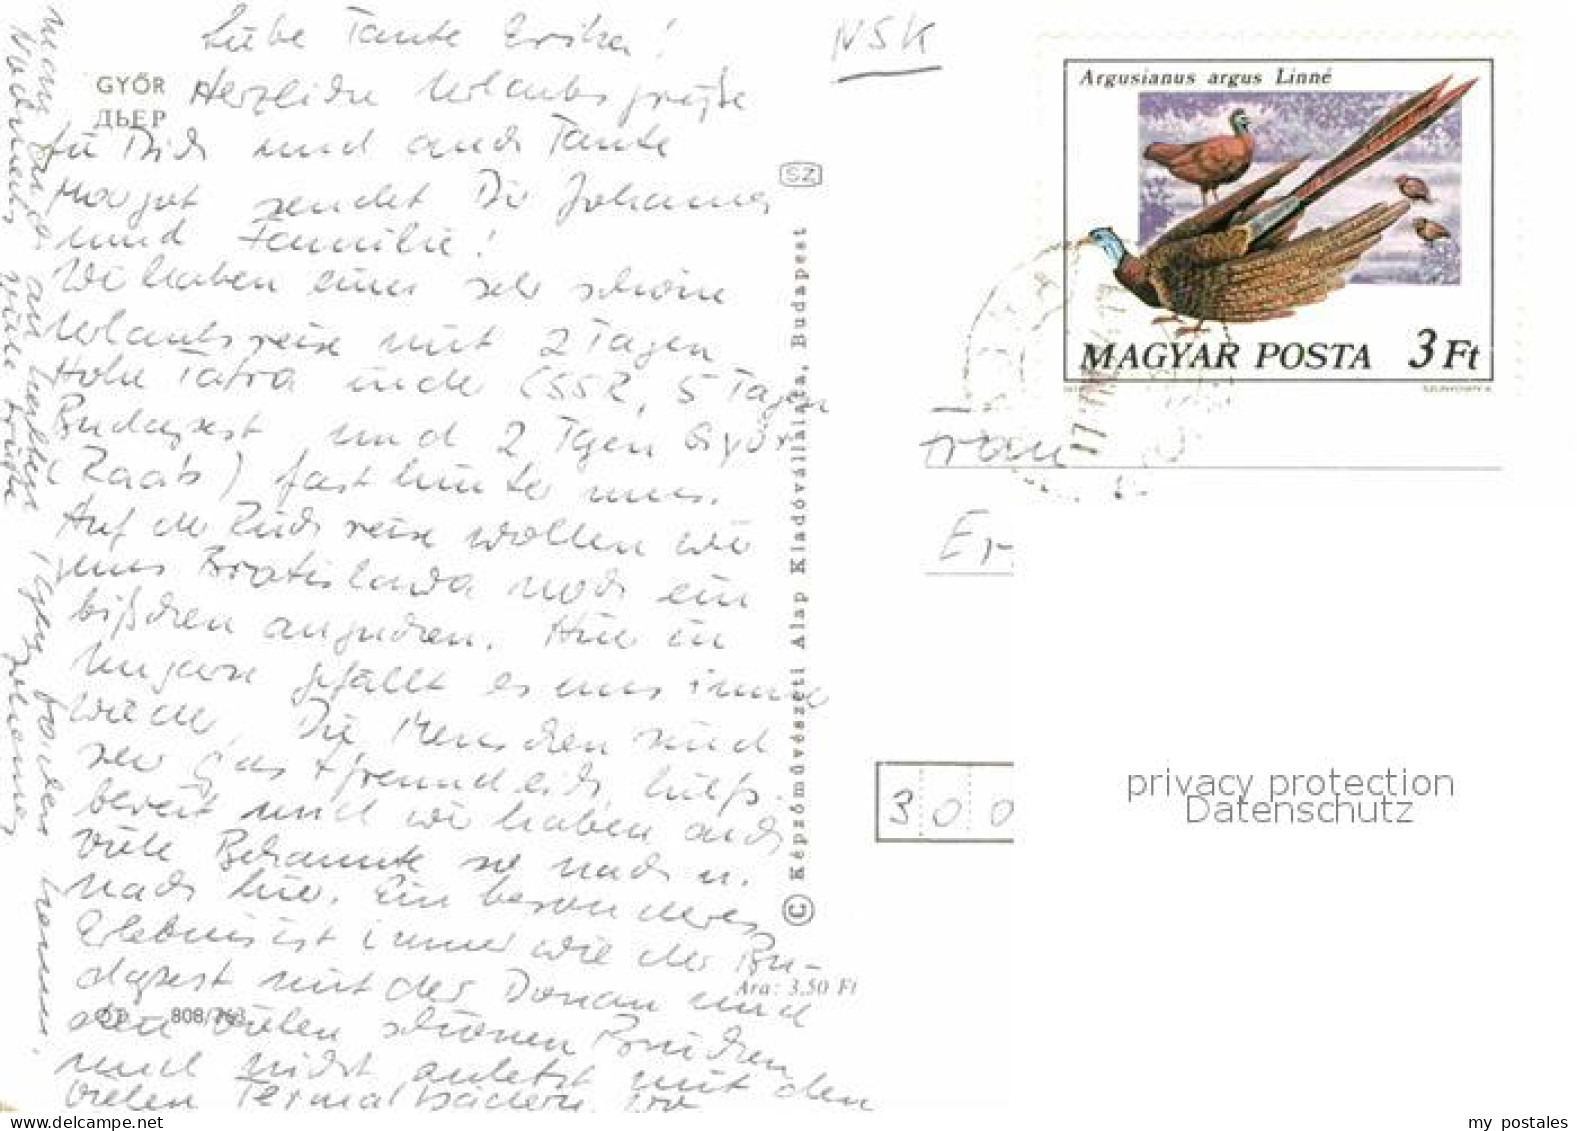 Liebe Tante Erika!
NSK
GYŐR
ДЬЕР
Herzliche Urlaubsgrüße
für Dich und auch Tante
Margot sendet Dir Johannes
und Familie!
Wir haben eine sehr schöne
Urlaubsreise mit 2 Tagen
Hohe Tatra in der CSSR, 5 Tagen
Budapest und 2 Tagen Györ
(Raab) fast hinter uns.
Auf der Rückreise wollen wir
uns Bratislava noch ein
bißchen angucken. Hier in
Ungarn gefällt es uns immer
wieder. Die Menschen sind
sehr gastfreundlich, hilfs-
bereit und wir haben auch
viele Bekannte nach u.
nach hier. Ein besonderes
Erlebnis ist immer wieder Bu-
dapest mit der Donau und
den vielen schönen Brücken
und nicht zuletzt mit den
vielen Termalbädern, wo
man an
Nochmals viele Grüße Johannes
SZ
© Képzőművészeti Alap Kiadóvállalata, Budapest
Ára: 3,50 Ft
808/763
Argusianus argus Linné
MAGYAR POSTA 3 Ft
17
Frau
Er
300
privacy protection
Datenschutz
www.delcampe.net
my_postales